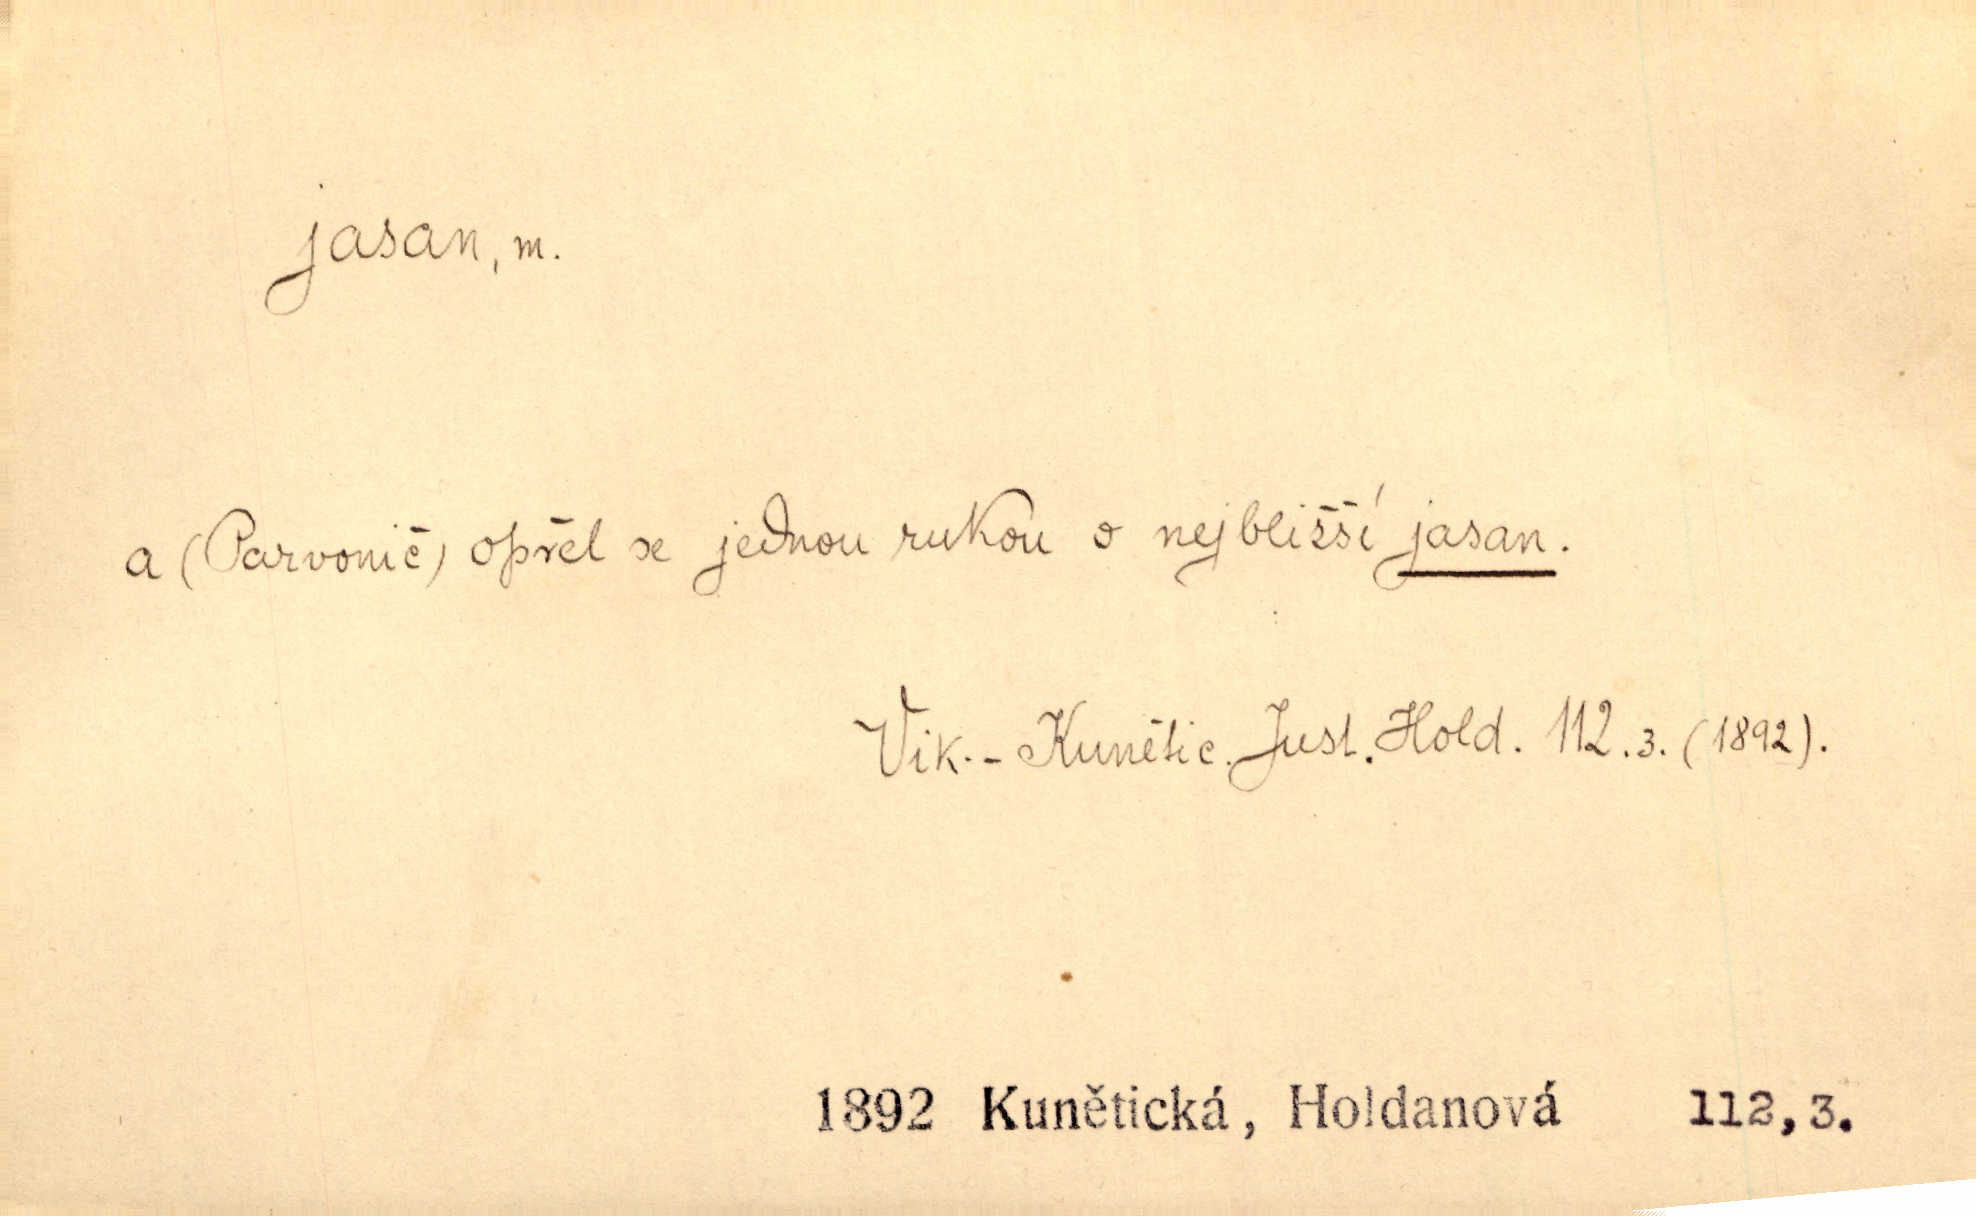 jasan, m.
a (Parvonič) opřel se jednou rukou o nejbližší jasan.
Vik.-Kunětic. Just. Hold. 112.3. (1892).
1892 Kunětická, Holdanová 112,3.